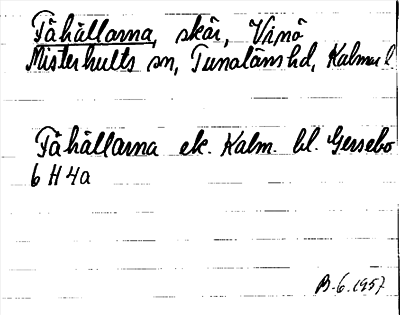 Fåhällarna, skär, Vinö
Misterhults sn, Tunaläns hd, Kalmar l.
Fåhällarna ek. Kalm. bl. Gersebo
6 H 4a
B-6.1957